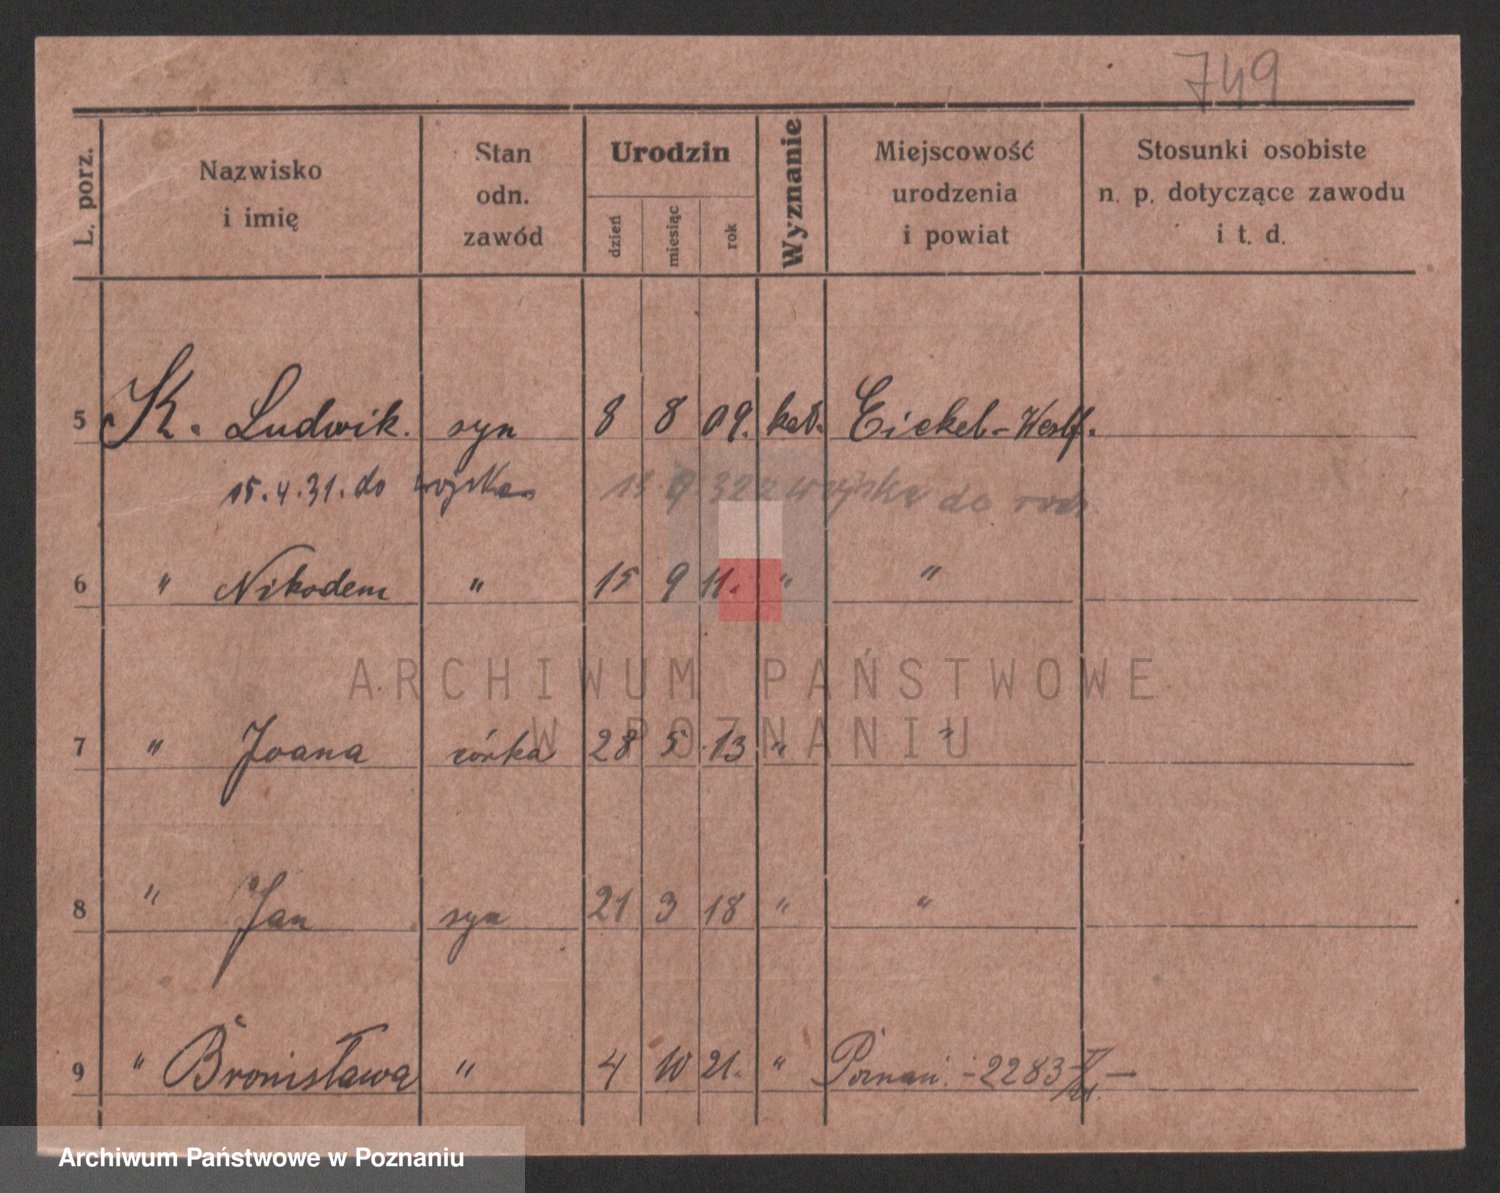 749
L. porz.
Nazwisko i imię
Stan odn. zawód
Urodzin
dzień
miesiąc
rok
Wyznanie
Miejscowość urodzenia i powiat
Stosunki osobiste n. p. dotyczące zawodu i t. d.
5 K. Ludwik. syn 8 8 09. kat. Eickel-Westf.
15.4.31. do wojska 9 32 z wojska do
6 " Nikodem " 15 9 11. " "
ARCHIWUM PAŃSTWOWE
W POZNANIU
7 " Joana córka 28 5 13 " "
8 " Jan syn 21 3 18 " "
9 " Bronisława " 4 10 21. " Poznań. -2283
Archiwum Państwowe w Poznaniu